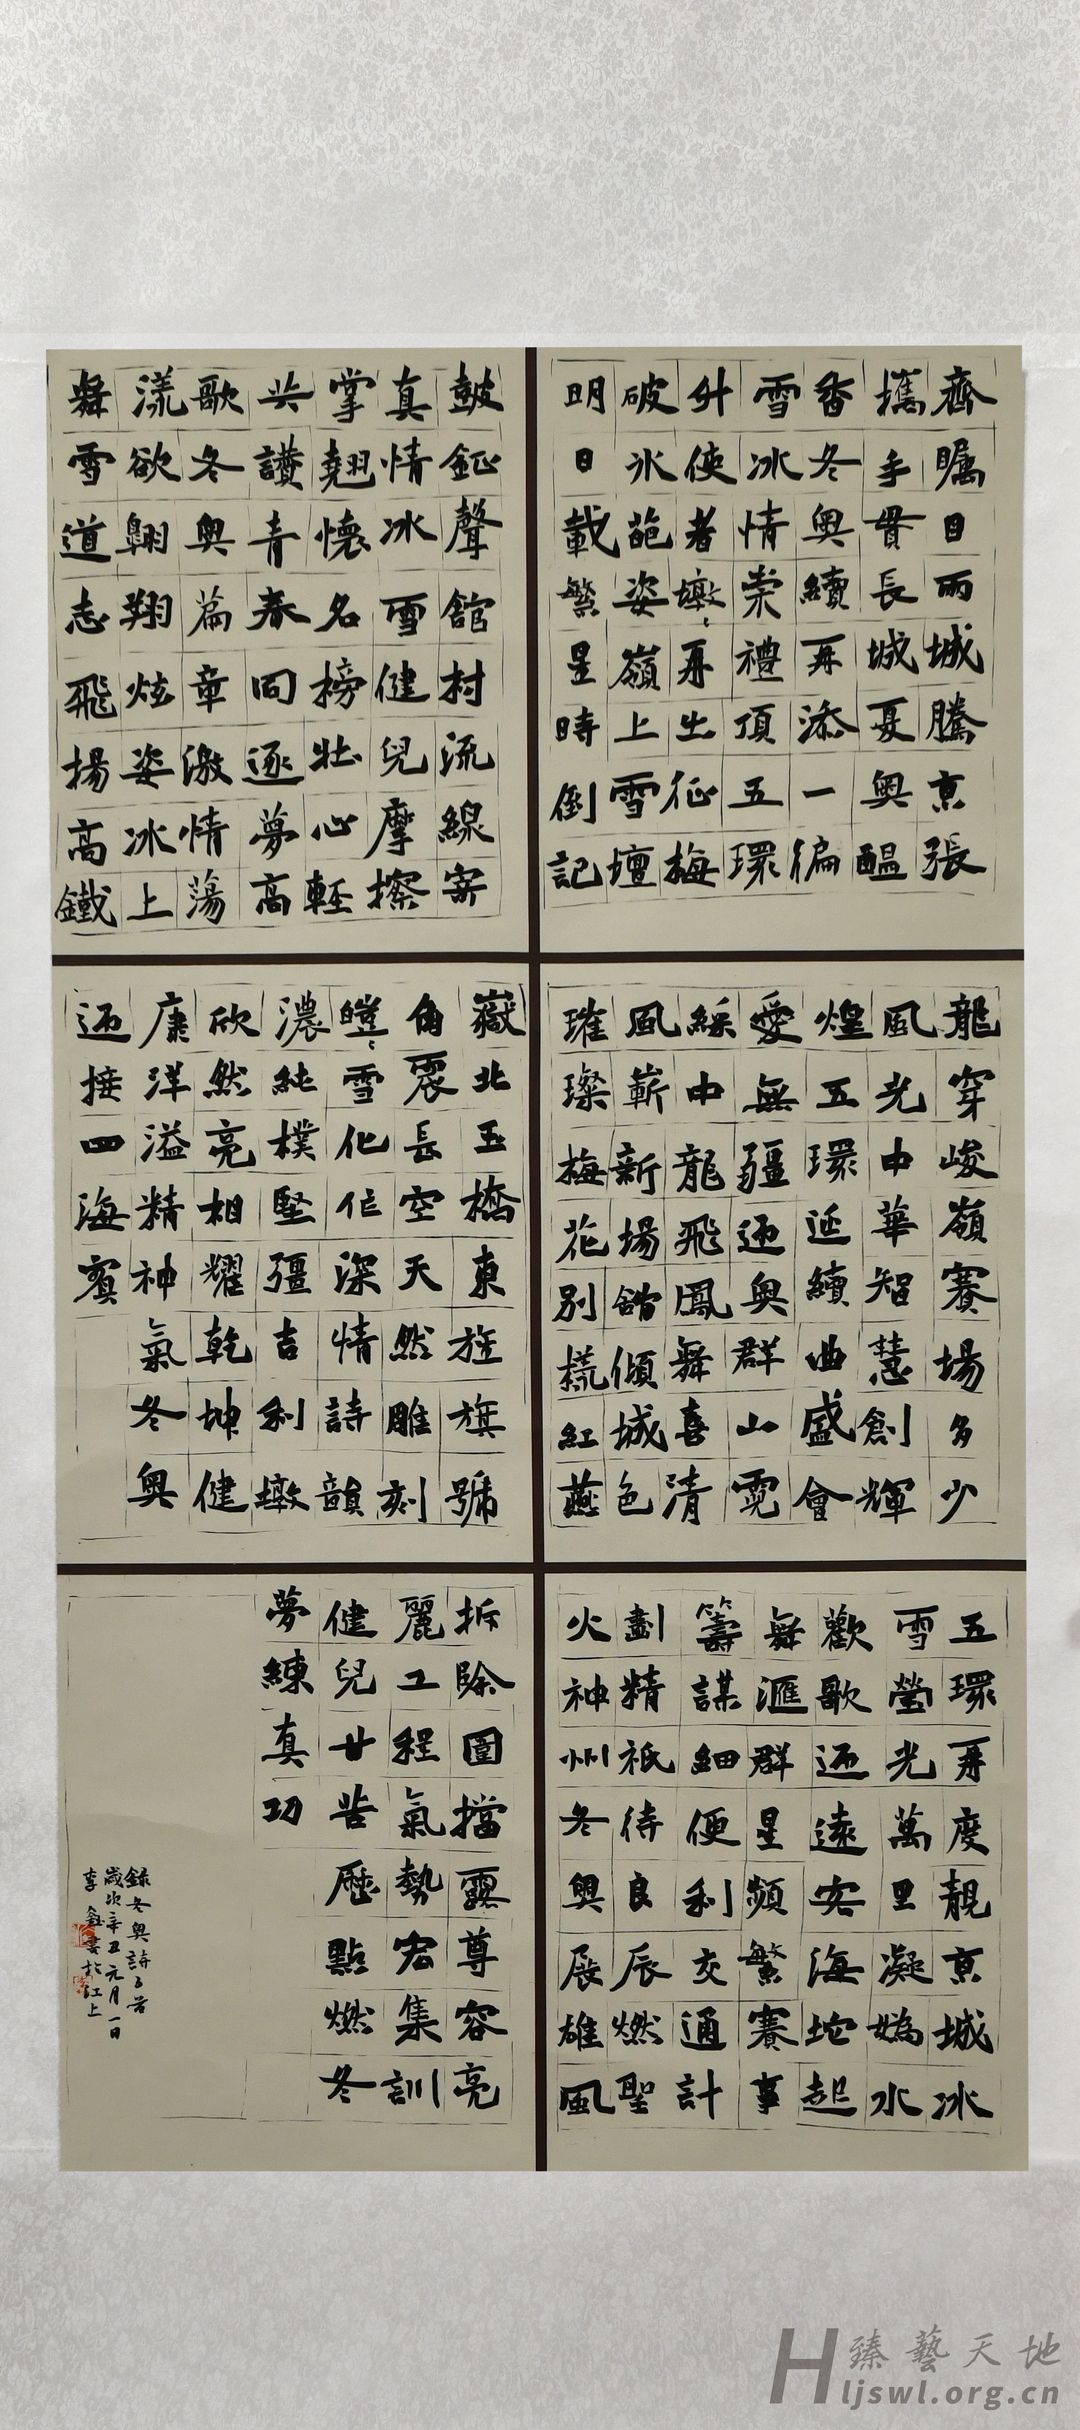 齊矚目兩城騰京張
攜手貫長城夏奧醞
香冬奧續再添一徧
雪冰情崇禮頂五環
升使者墩墩再出征梅
破冰葩姿嶺上雪壇
明日載繁星時倒記
鼓鉦聲館村流線寄
真情冰雪健兒摩擦
掌翹懷名榜壯心輕
共讚青春同逐夢高
歌冬奧篇章激情蕩
漾欲翱翔炫姿冰上
舞雪道志飛揚高鐵
龍穿峻嶺賽場多少
風光中華智慧創輝
煌五環延續曲盛會
愛無疆迎奧群山霓
綵中龍飛鳳舞喜清
風嶄新場館傾城色
璀璨梅花別樣紅燕
嶽北玉橋東旌旗號
角震長空天然雕刻
皚皚雪化作深情詩韻
濃純樸堅彊吉利墩
欣然亮相耀乾坤健
康洋溢精神氣冬奧
迎接四海賓
五環再度靚京城冰
雪瑩光萬里凝媯水
歡歌迎遠客海坨起
舞滙群星頻繁賽事
籌謀細便利交通計
劃精祇待良辰燃聖
火神州冬奧展雄風
拆除圍擋露尊容亮
麗工程氣勢宏集訓
健兒甘苦歷點燃冬
夢練真功
錄冬奧詩首
歲次辛丑元月一日
李書於江上
臻藝天地
ljswl.org.cn